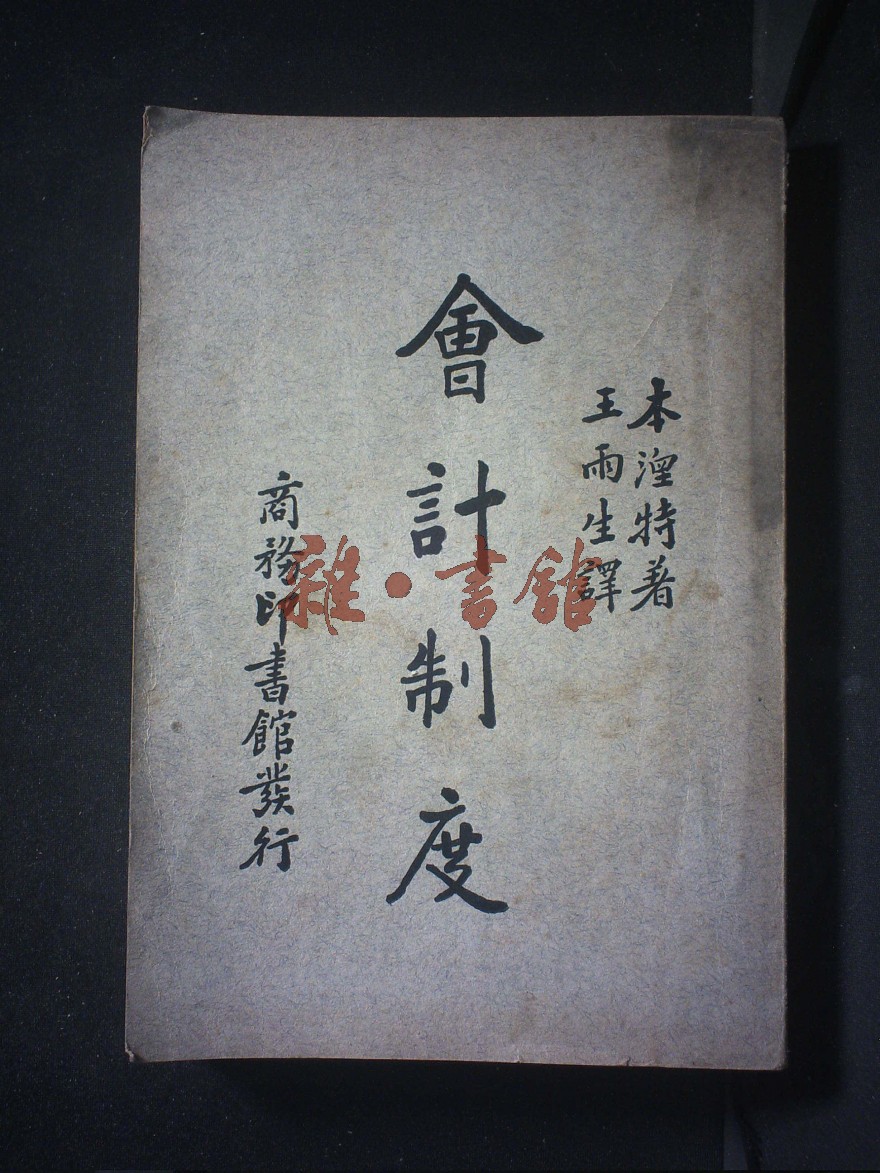 本湼特著
王雨生譯
會計制度
商務印書館發行
雜·書館